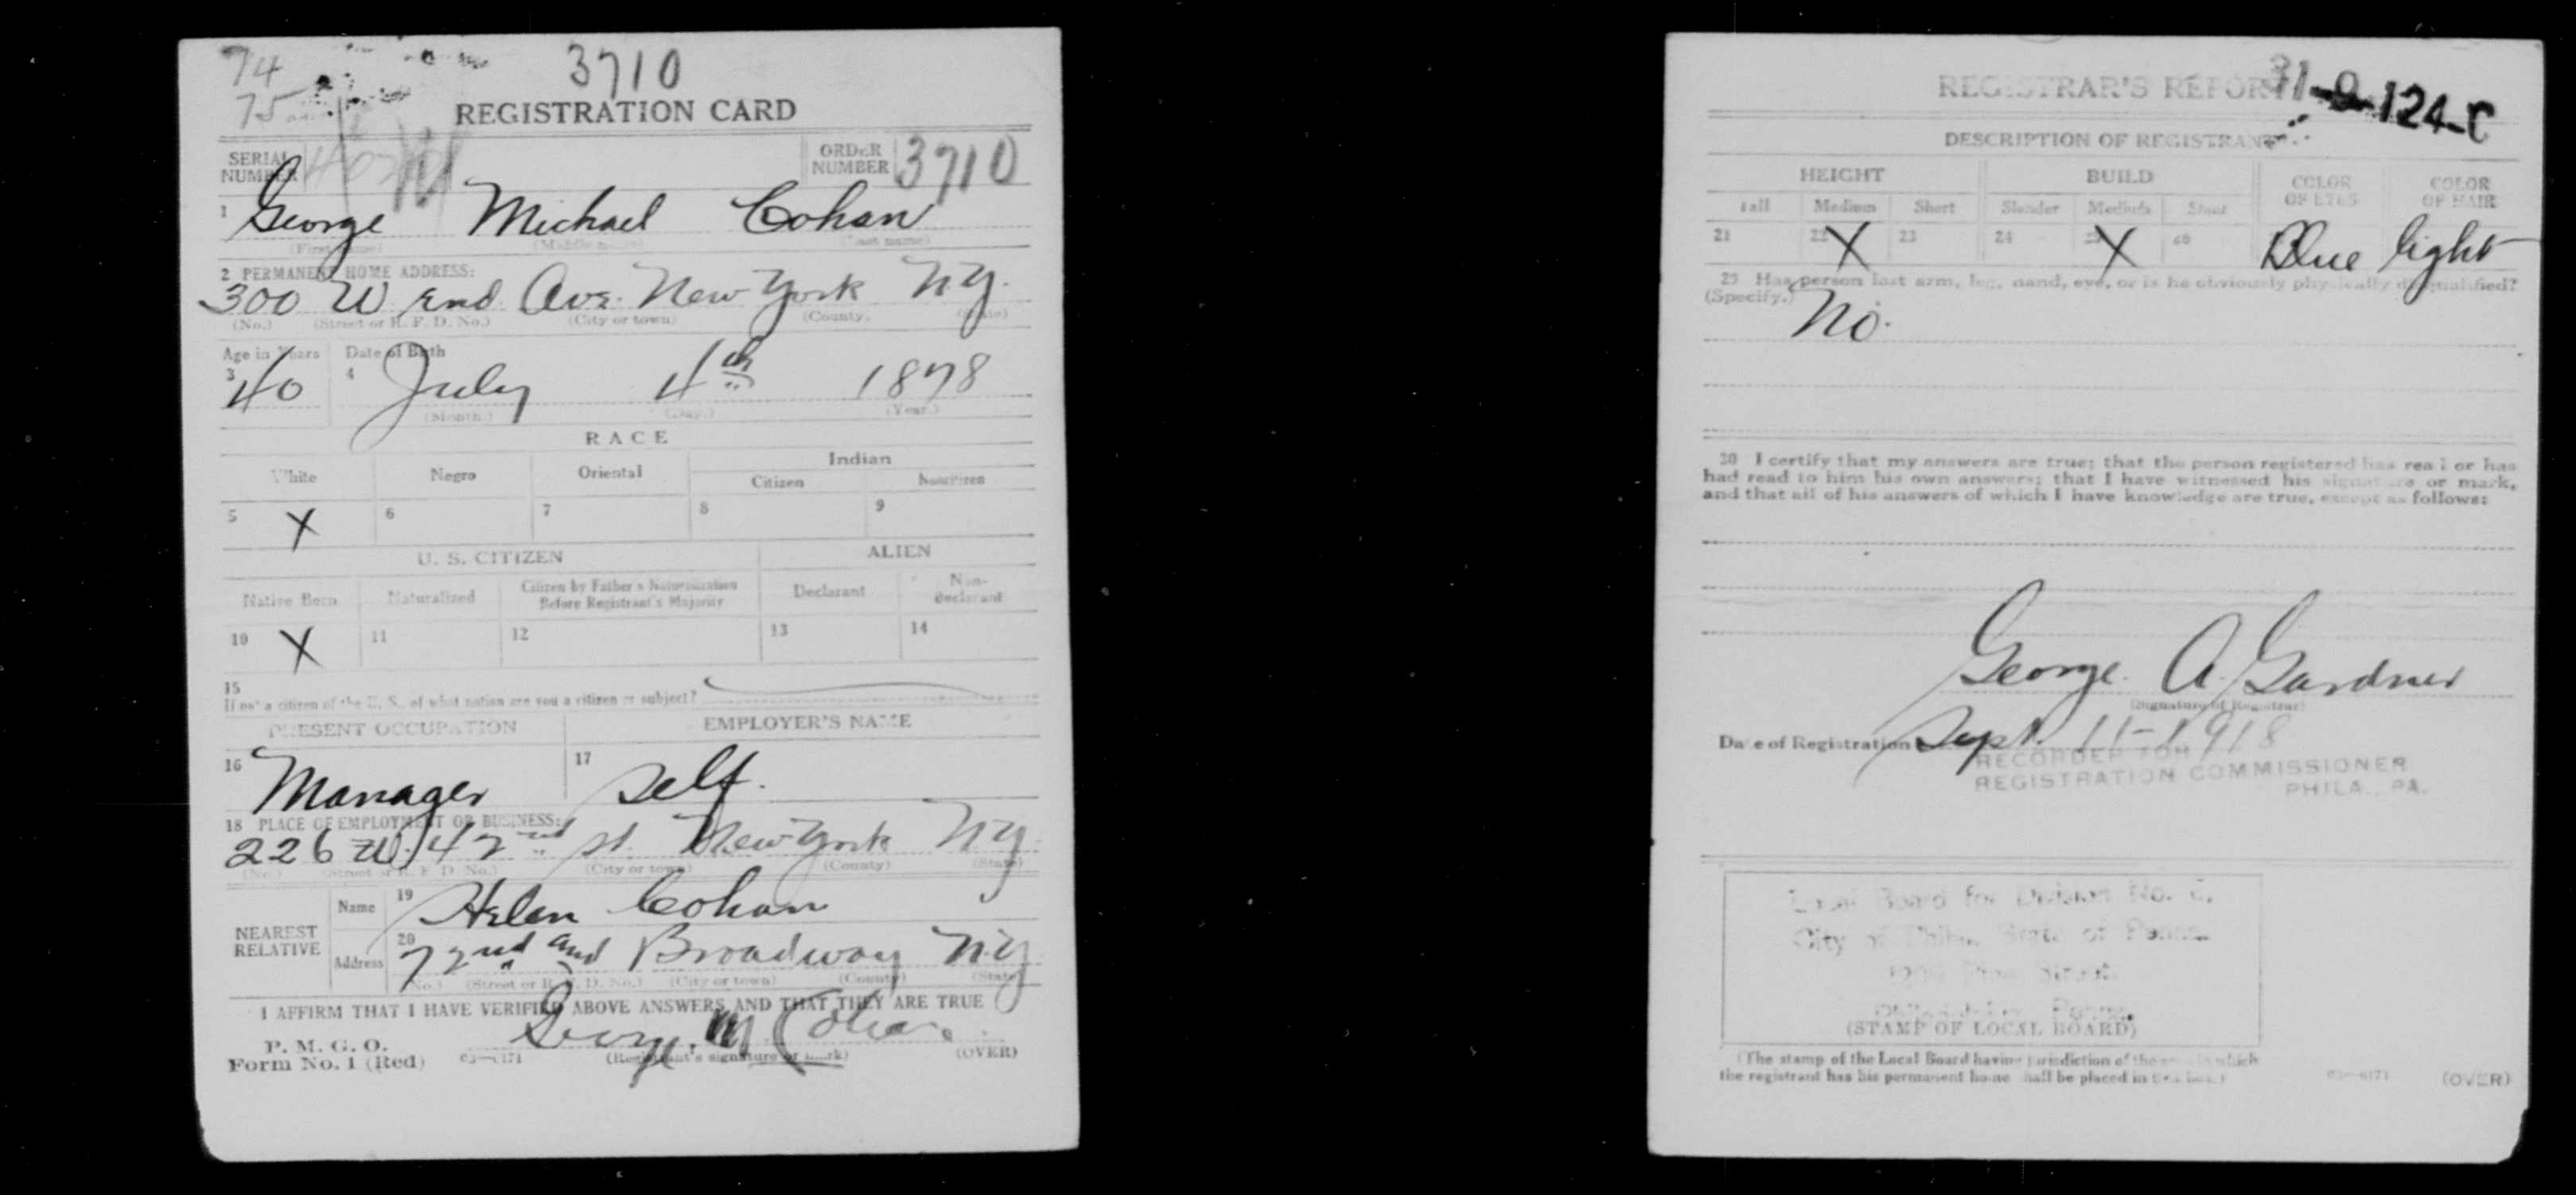 74
75
3710
REGISTRATION CARD
SERIAL NUMBER
ORDER NUMBER 3710
1 George Michael Cohan
(First name) (Middle name) (Last name)
2 PERMANENT HOME ADDRESS:
300 W End Ave. New York N.Y.
(No.) (Street or R. F. D. No.) (City or town) (County) (State)
Age in Years Date of Birth
3 40 4 July 4th 1878
(Month.) (Day.) (Year.)
RACE
White Negro Oriental Indian
Citizen Noncitizen
5 X 6 7 8 9
U. S. CITIZEN ALIEN
Native Born Naturalized Citizen by Father's Naturalization Before Registrant's Majority Declarant Non-declarant
10 X 11 12 13 14
15
If not a citizen of the U. S., of what nation are you a citizen or subject?
PRESENT OCCUPATION EMPLOYER'S NAME
16 Manager 17 Self.
18 PLACE OF EMPLOYMENT OR BUSINESS:
226 W. 42nd st. New York N.Y.
(No.) (Street or R. F. D. No.) (City or town) (County) (State)
NEAREST RELATIVE
Name 19 Helen Cohan
Address 20 72nd and Broadway N.Y
(No.) (Street or R. F. D. No.) (City or town) (County) (State)
I AFFIRM THAT I HAVE VERIFIED ABOVE ANSWERS AND THAT THEY ARE TRUE
P. M. G. O.
Form No. 1 (Red) 03—6171 George M Cohan (Registrant's signature or mark) (OVER)
REGISTRAR'S REPORT
31-9-124-C
DESCRIPTION OF REGISTRANT
HEIGHT BUILD COLOR OF EYES COLOR OF HAIR
Tall Medium Short Slender Medium Stout
21 22 X 23 24 25 X 26 Blue light
29 Has person lost arm, leg, hand, eye, or is he obviously physically disqualified?
(Specify.) No.
30 I certify that my answers are true; that the person registered has read or has
had read to him his own answers; that I have witnessed his signature or mark,
and that all of his answers of which I have knowledge are true, except as follows:
George A. Gardner
(Signature of Registrar)
Date of Registration Sept. 11-1918
RECORDER FOR
REGISTRATION COMMISSIONER
PHILA., PA.
Local Board for Division No.
City of Phila. State of Penna.
Pine Street
Philadelphia Penna.
(STAMP OF LOCAL BOARD)
(The stamp of the Local Board having jurisdiction of the area in which
the registrant has his permanent home shall be placed in this box.)
03—6171 (OVER)